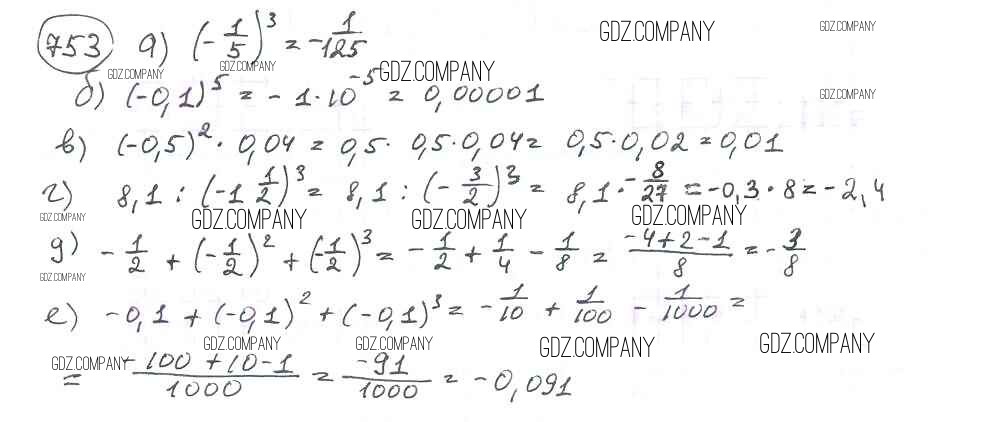 753 а) (-1/5)^3 = -1/125 GDZ.COMPANY GDZ.COMPANY
GDZ.COMPANY GDZ.COMPANY GDZ.COMPANY
б) (-0,1)^5 = -1·10^-5 = 0,00001 GDZ.COMPANY
в) (-0,5)^2 · 0,04 = 0,5 · 0,5·0,04 = 0,5·0,02 = 0,01
г) 8,1 : (-1 1/2)^3 = 8,1 : (-3/2)^3 = 8,1·-8/27 = -0,3·8 = -2,4
GDZ.COMPANY GDZ.COMPANY GDZ.COMPANY GDZ.COMPANY
д) -1/2 + (-1/2)^2 + (-1/2)^3 = -1/2 + 1/4 - 1/8 = (-4+2-1)/8 = -3/8
GDZ.COMPANY
е) -0,1 + (-0,1)^2 + (-0,1)^3 = -1/10 + 1/100 - 1/1000 =
GDZ.COMPANY GDZ.COMPANY GDZ.COMPANY GDZ.COMPANY
GDZ.COMPANY
= (-100+10-1)/1000 = -91/1000 = -0,091